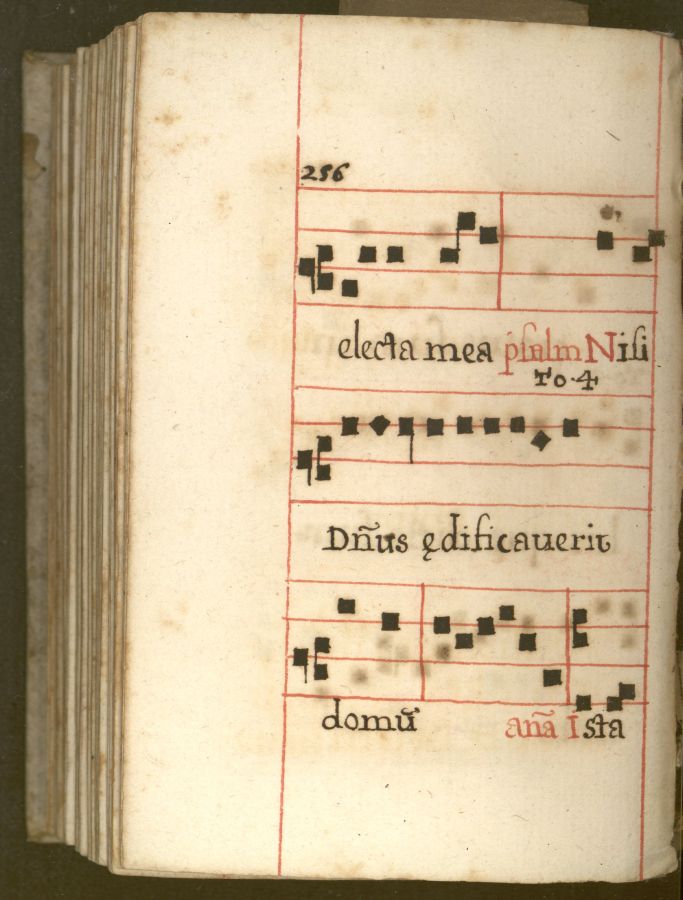 256
electa mea psalm Nisi
To. 4
Dn̄us ędificauerit
domū anā Ista